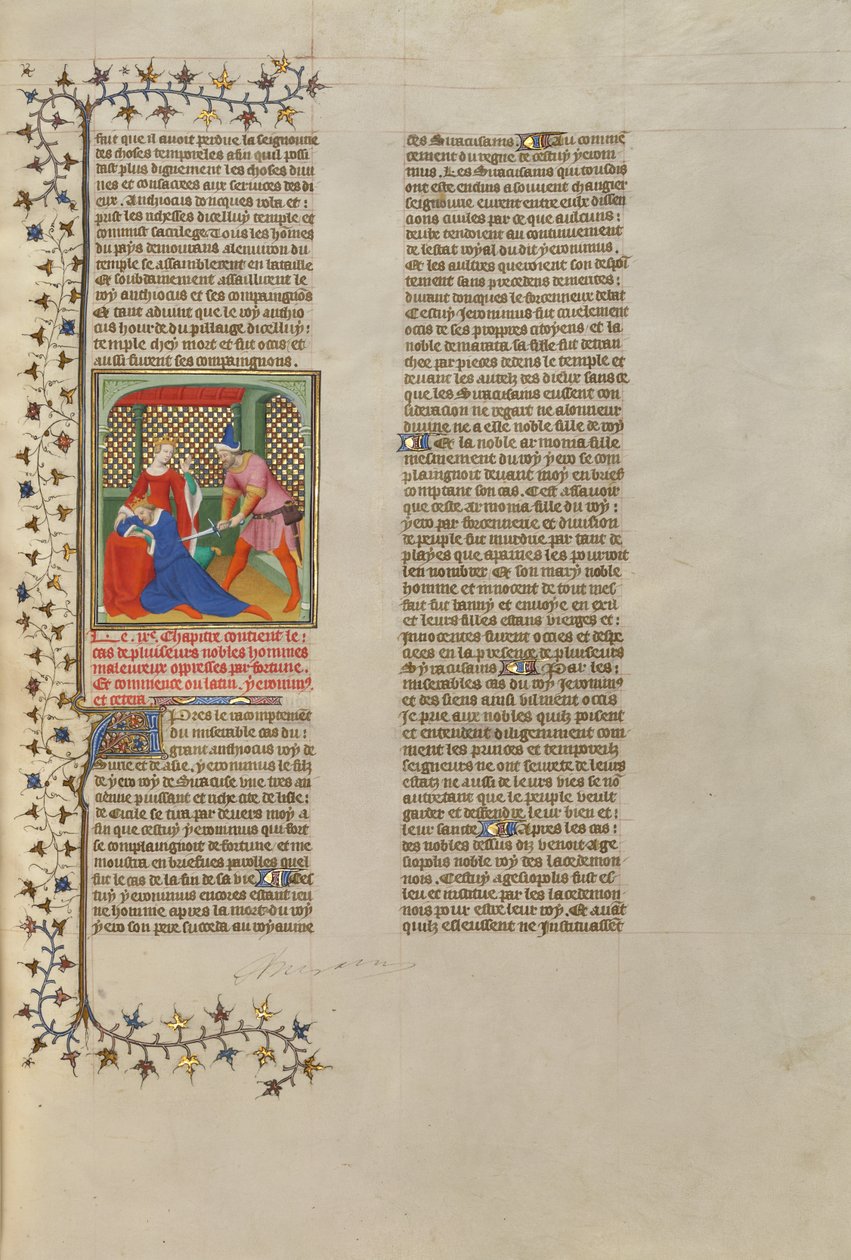 fait que il auoit perdue la seignourie
des choses temporeles afin quil possi
dast plus dignement les choses diui
nes et consacrees aux seruices des di
eux. Anthiocus doncques vola et :
prist les richesses dicelluy temple et
commist sacrilege. Tous les hōmes
du pays demourans alenuiron du
temple se assamblerent en bataille
Et soubdainement assaillirent le
roy anthiocus et ses compaingnōs
Et tant aduint que le roy anthio
cus hourde du pillaige dicelluy :
temple chey mort et fut occis et
aussi furent ses compaingnons.
Le .ixe. Chapitre contient le :
cas de pluiseurs nobles hommes
maleureux oppresses par fortune.
Et commence ou latin. yeronimus.
et cetera
Apres le racomptement
du miserable cas du :
grant anthiocus roy de
Surie et de asie. yeronimus le filz
de yero roy de Siracuse vne tres an
cienne puissant et riche cite de lisle :
de Cicile se tira par deuers moy a
fin que cestuy yeronimus qui fort
se complaingnoit de fortune et me
moustra en briefues parolles quel
fut le cas de la fin de sa vie. Ces
tuy yeronimus encores estant ieu
ne homme apres la mort du roy
yero son pere succeda au royaume
des Siracusains. Au commē
cement du regne de cestuy yeroni
mus. Les Siracusains qui tousdis
ont este enclins a souuent changier
seignourie eurent entre eulx dissen
cions ciuiles par ce que aulcuns :
deulx tendoient au continuement
de lestat royal du dit yeronimus.
Et les aultres queroient son despoi
tement sans precedens demerites :
durant doncques le forcenneux debat
Cestuy Jeronimus fut cruelement
occis de ses propres citoyens et la
noble demarata sa fille fut detren
chee par pieces dedens le temple et
deuant les autelz des dieux sans ce
que les Siracusains eussent con
sideracion ne regart ne alonneur
diuine ne a elle noble fille de roy
Et la noble armonia fille
mesmement du roy yero se com
plaingnoit deuant moy en brief
comptant son cas. Cest assauoir
que ceste armonia fille du roy :
yero par forcennerie et diuision
de peuple fut murdrie par tant de
playes que apaines les pourroit
len nombrer Et son mary noble
homme et innocent de tout mes
fait fut banny et enuoye en exil
et leurs filles estans vierges et :
Innocentes furent occies et despe
ciees en la presence de pluiseurs
Syracusains Par les :
miserables cas du roy Jeronimus
et des siens ainsi vilment occis
Je prie aux nobles quilz poisent
et entendent diligemment com
ment les princes et temporelz
seigneurs ne ont seurete de leurs
estatz ne aussi de leurs vies se nō
autretant que le peuple veult
garder et deffendre leur bien et :
leur sante Apres les cas :
des nobles dessus diz venoit Age
siopolis noble roy des lacedemon
nois. Cestuy agesiopolis fust es
leu et institue par les lacedemon
nois pour estre leur roy. Et auāt
quilz esleussent ne Instituassēt